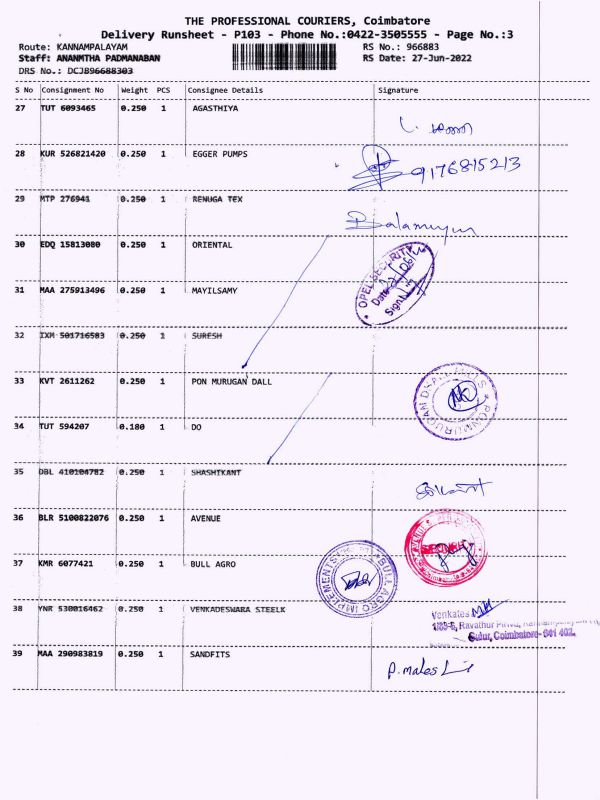 THE PROFESSIONAL COURIERS, Coimbatore
Delivery Runsheet - P103 - Phone No.:0422-3505555 - Page No.:3
Route: KANNAMPALAYAM RS No.: 966883
Staff: ANANMTHA PADMANABAN RS Date: 27-Jun-2022
DRS No.: DCJB96688303
S No Consignment No Weight PCS Consignee Details Signature
27 TUT 6093465 0.250 1 AGASTHIYA
28 KUR 526821420 0.250 1 EGGER PUMPS
9176815213
29 MTP 276941 0.250 1 RENUGA TEX
Balamurugan
30 EDQ 15813080 0.250 1 ORIENTAL
OPEL SECURITY
Date
Sign
31 MAA 275913496 0.250 1 MAYILSAMY
32 IXM 501716583 0.250 1 SURESH
33 KVT 2611262 0.250 1 PON MURUGAN DALL
34 TUT 594207 0.180 1 DO
35 DBL 410104782 0.250 1 SHASHIKANT
36 BLR 5100822076 0.250 1 AVENUE
37 KMR 6077421 0.250 1 BULL AGRO
BULL AGRO IMPLEMENTS
38 YNR 530016462 0.250 1 VENKADESWARA STEELK
Venkates
Ravathur
Sulur, Coimbatore- 641 402.
39 MAA 290983819 0.250 1 SANDFITS